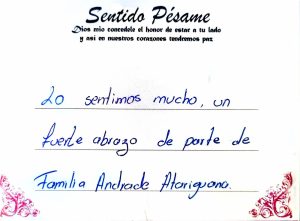 Sentido Pésame
Dios mio concedele el honor de estar a tu lado
y asi en nuestros corazones tendremos paz
Lo sentimos mucho, un
fuerte abrazo de parte de
Familia Andrade Atariguana.